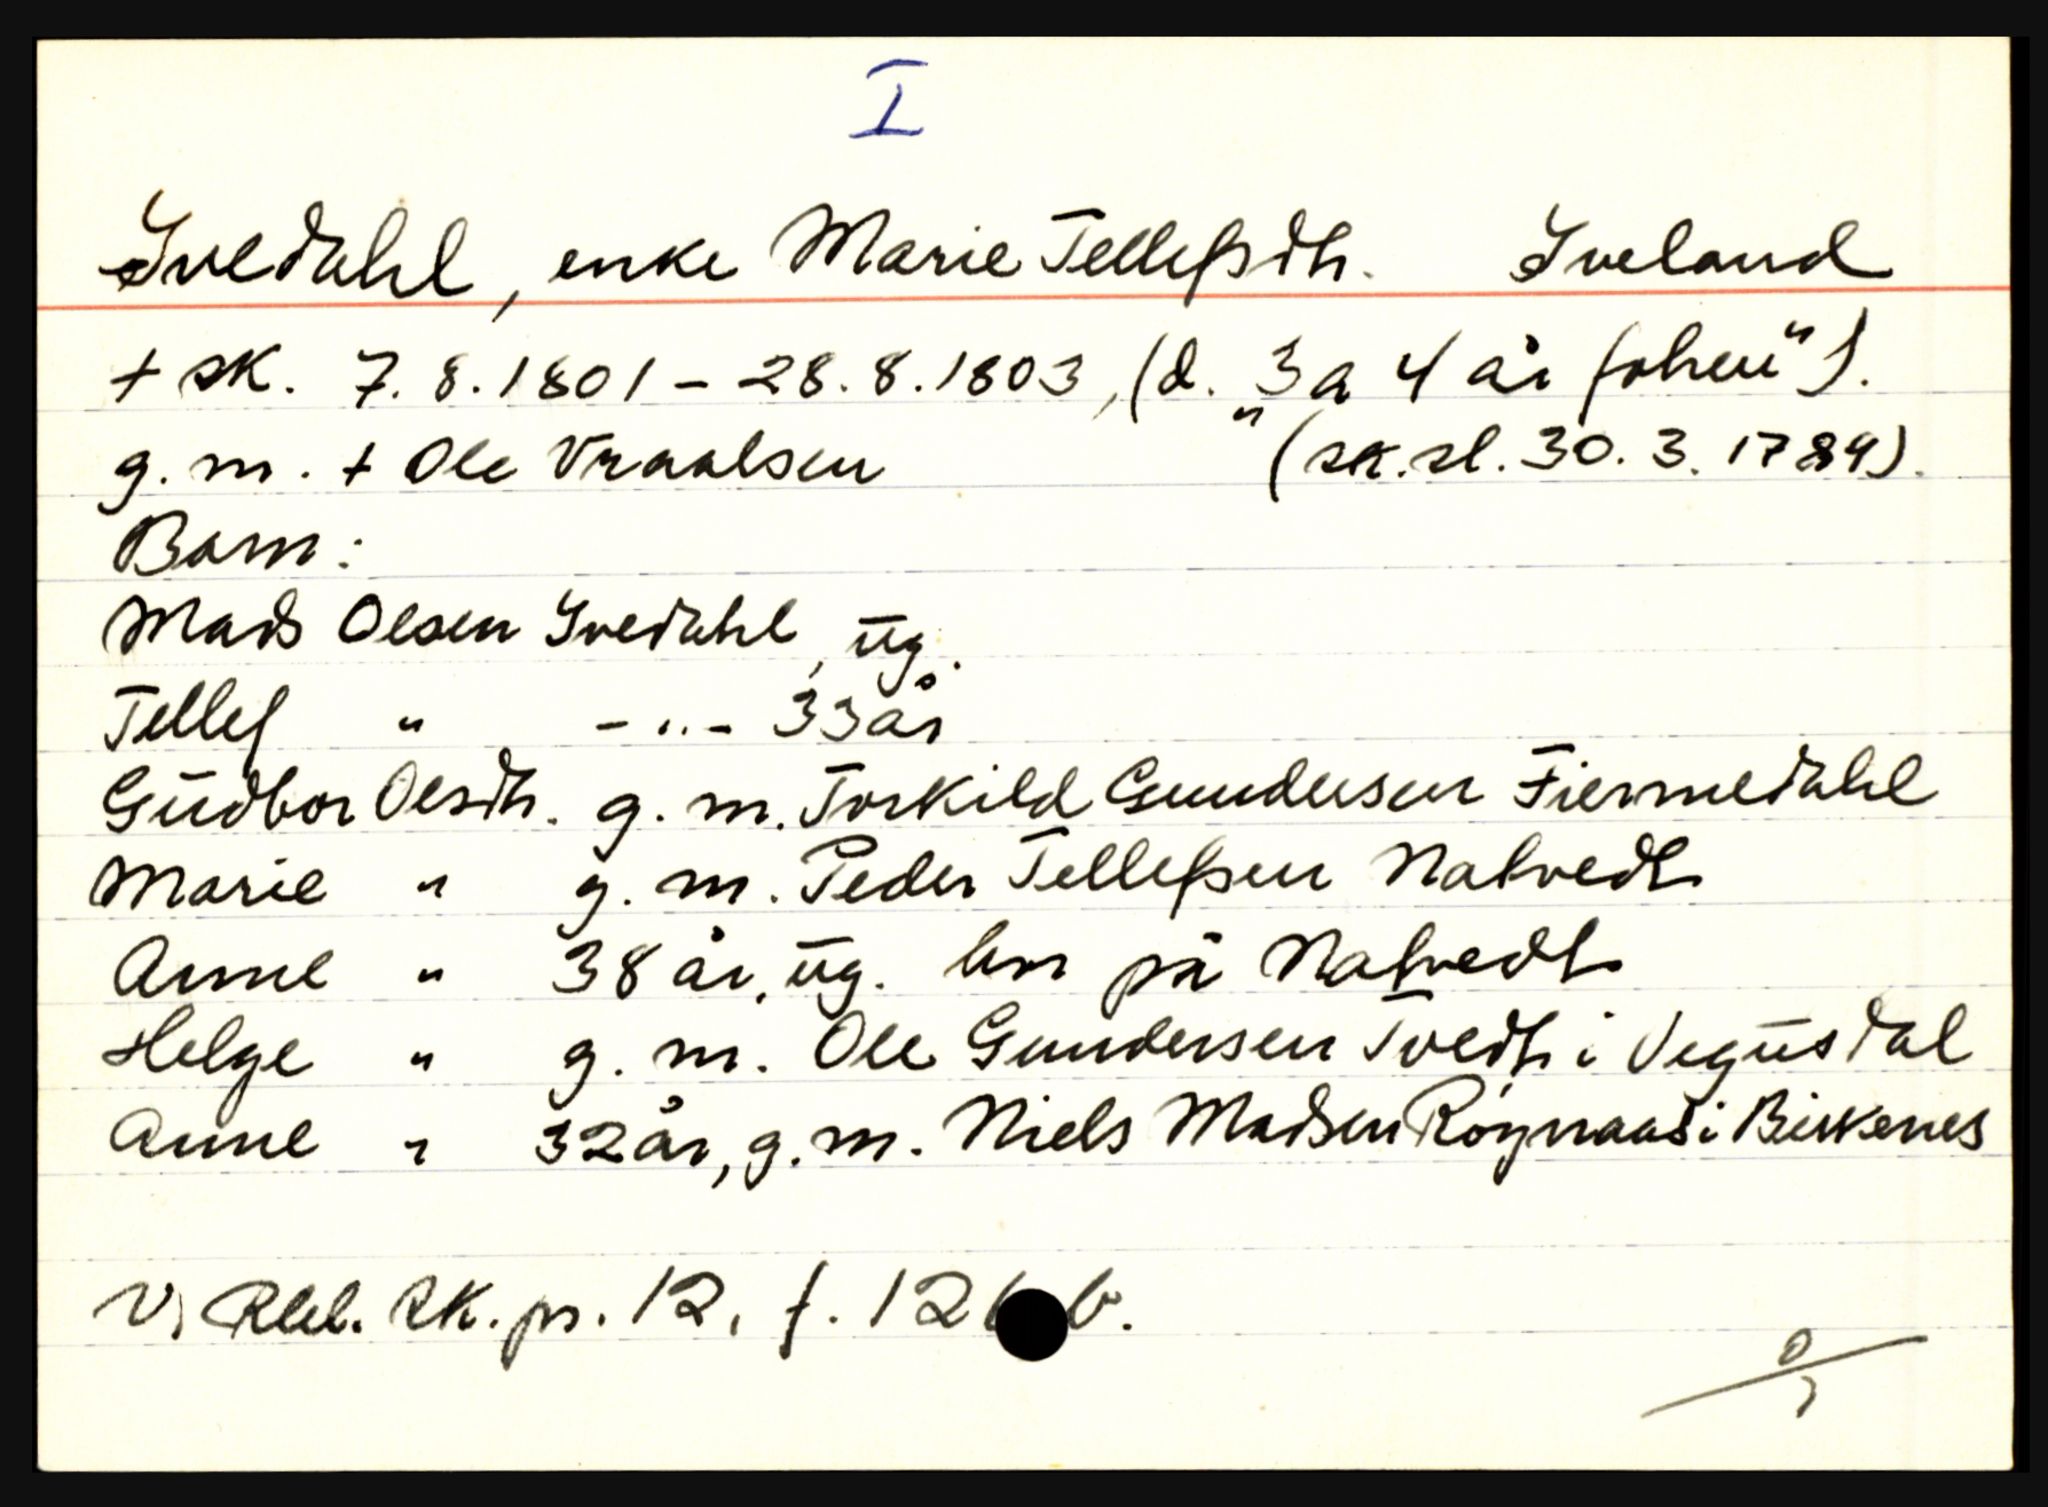 I
Ivedahl, enke Marie Tellefsdtr. Iveland
+ sk. 7.8.1801 - 28.8.1803, (d. "3 a 4 år forhen").
g. m. + Ole Vraalsen (sk.sl. 30.3.1789).
Barn:
Mads Olsen Ivedahl, ug.
Tellef " - " - 33 år
Gudbor Olsdtr. g. m. Torkild Gundersen Fiermedahl
Marie " g. m. Peder Tellefsen Natvedt
Anne " 38 år, ug. bor på Natvedt
Helge " g. m. Ole Gundersen Tvedt i Vegusdal
Anne " 32 år, g. m. Niels Madsen Røynaas i Birkenes
V. Rbl. sk. pr. 12, f. 126 b.